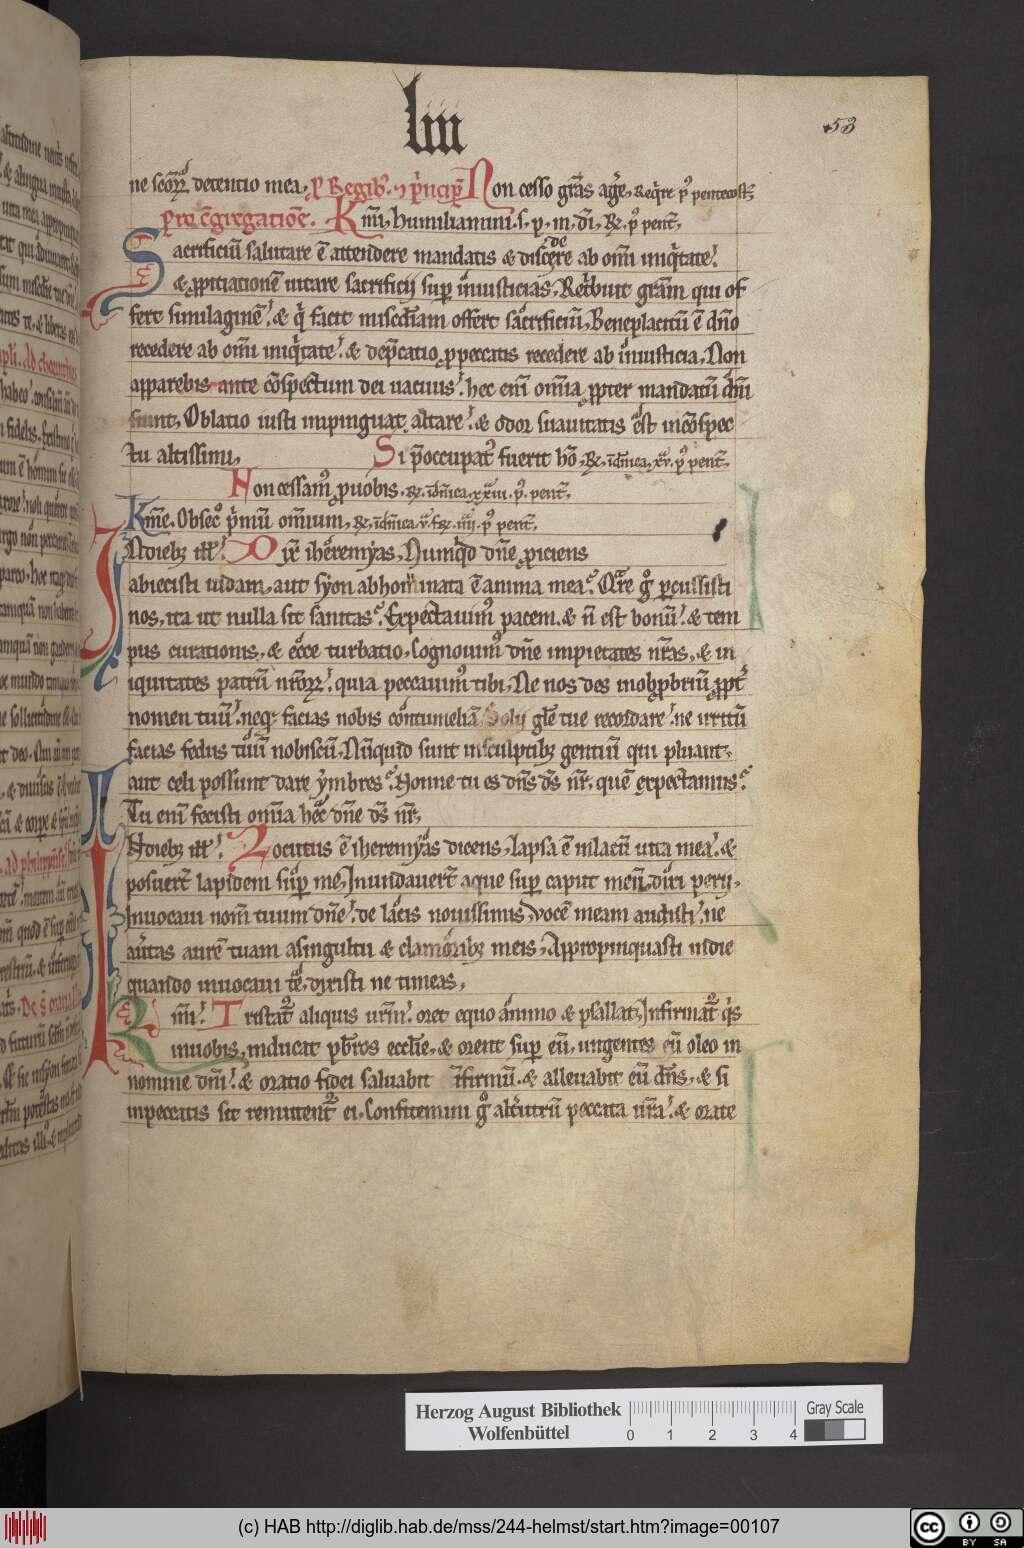 liii
53
ne scōꝝ detentio mea. ꝑ Regibꝰ. ⁊ p̄ncipꝰ Non cesso gr̄as agē, reqͥre pͦ pentecosꝫ
pro ꝯ̄gregatiōe. Kmī, humiliamini. s. p. m. dī. ⁊c. pͦ penť.
Sacrificiū salutare ē attendere mandatis & discedere ab omī iniqͥtate.
& ꝓpitiationē uitare sacrificii suꝑ iniusticias. Retͥbuit grām qui of
fert similaginē. & qͥ facit misc̄diam offert sacrificiū. Beneplacitū ē dn̄o
recedere ab omī iniqͥtate. & dep̄catio ꝓ peccatis recedere ab iniusticia. Non
apparebis ante cōspectum dei uacuus. hec enī omīa ꝓpter mandatū dn̄i
fiunt. Oblatio iusti impinguat altare. & odor suauitatis est incōspec
tu altissimi.
Si p̄occupatꝰ fuerit hō. ⁊c. īdn̄ica. xv. pͦ penť.
Non cessamꝰ ꝓ uobis. ⁊c. īdn̄ica. xxiiii. pͦ. penť.
Kme. Obsecͦ pͥmū omnium. ⁊c. īdn̄ica. v. f. iiii. pͦ penť.
IN diebꝫ ill̄. Dix̄ iheremyas. Numqͥd dn̄e ꝓiciens
abiecisti iudam. aut syon abhominata ē anima mea. Qͣre gͦ ꝑcussisti
nos. ita ut nulla sit sanitas. Expectauimꝰ pacem. & n̄ est bonū. & tem
pus curationis. & ecce turbatio. Cognouimꝰ dn̄e impietates nr̄as. & in
iquitates patrū nr̄oꝝ. quia peccauimꝰ tibi. Ne nos des in obꝓbriū ꝓpť
nomen tuū. neqꝫ facias nobis cōtumeliā Solii gl̄e tue recordare. ne irritū
facias fedus tuū nobiscū. Nūquid sunt in sculptibꝫ gentiū qui pluant.
aut celi possunt dare ymbres. Nonne tu es dn̄s ds̄ nr̄. quē expectamus.
Tu enī fecisti omīa hec dn̄e ds̄ nr̄.
IN diebꝫ ill̄. Locutus ē iheremyas dicens. Lapsa ē in lacū uita mea. &
posuert̄ lapidem suꝑ me. Inundauert̄ aque suꝑ caput meū. dixi perii.
Inuocaui nom̄ tuum dn̄e. de lacis nouissimis. Vocē meam audisti. ne
au̓tas aurē tuam a singultu & clamoribꝫ meis. Appropinquasti in die
quando inuocaui te. dyxisti ne timeas.
Kmī. Tristatͬ aliquis urm̄. oret equo animo & psallat. Infirmatͬ qͥs
in uobis. inducat pb̄ros eccl̄ie. & orent suꝑ eū. ungentes eū oleo in
nomine dn̄i. & oratio fidei saluabit īfirmū. & alleuabit eū dn̄s. & si
in peccatis sit remittentͬ ei. Confitemini gͦ alt̓utrū peccata ur̄a. & orate
Herzog August Bibliothek
Wolfenbüttel
0 1 2 3 4
Gray Scale
(c) HAB http://diglib.hab.de/mss/244-helmst/start.htm?image=00107
cc BY SA